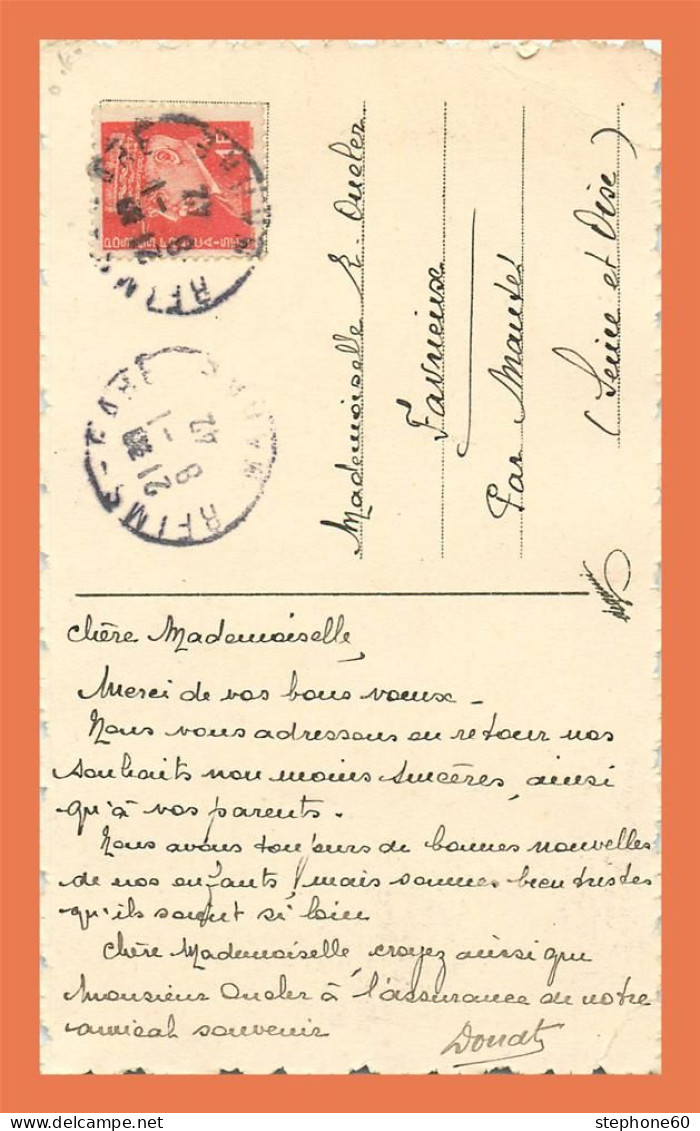 Mademoiselle R. Oucler
Favrieux
Par Mantes
(Seine et Oise)
REIMS-GARE
MARNE
21
8-1
42
1F
Chère Mademoiselle,
Merci de vos bons voeux -
Nous vous adressons en retour nos
souhaits non moins sincères, ainsi
qu'à vos parents.
Nous avons toujours de bonnes nouvelles
de nos enfants, mais sommes bien tristes
qu'ils soient si loin
Chère Mademoiselle, croyez ainsi que
Monsieur Oucler à l'assurance de notre
amical souvenir
Donat
stephone60